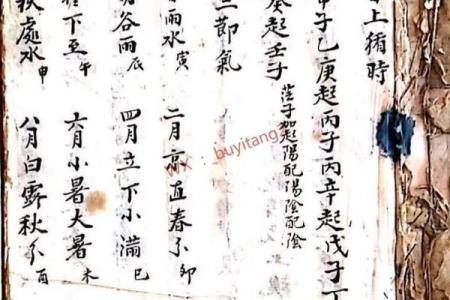 上循時
子乙庚起丙子丙辛起戊子丁
癸起壬子
子加起陽配陽陰配陰
節氣
雨水寅 二月京直春分卯
谷雨辰 四月立下小滿巳
下至午 六月小暑大暑未
處水申 八月白露秋分酉
WX：buyitang